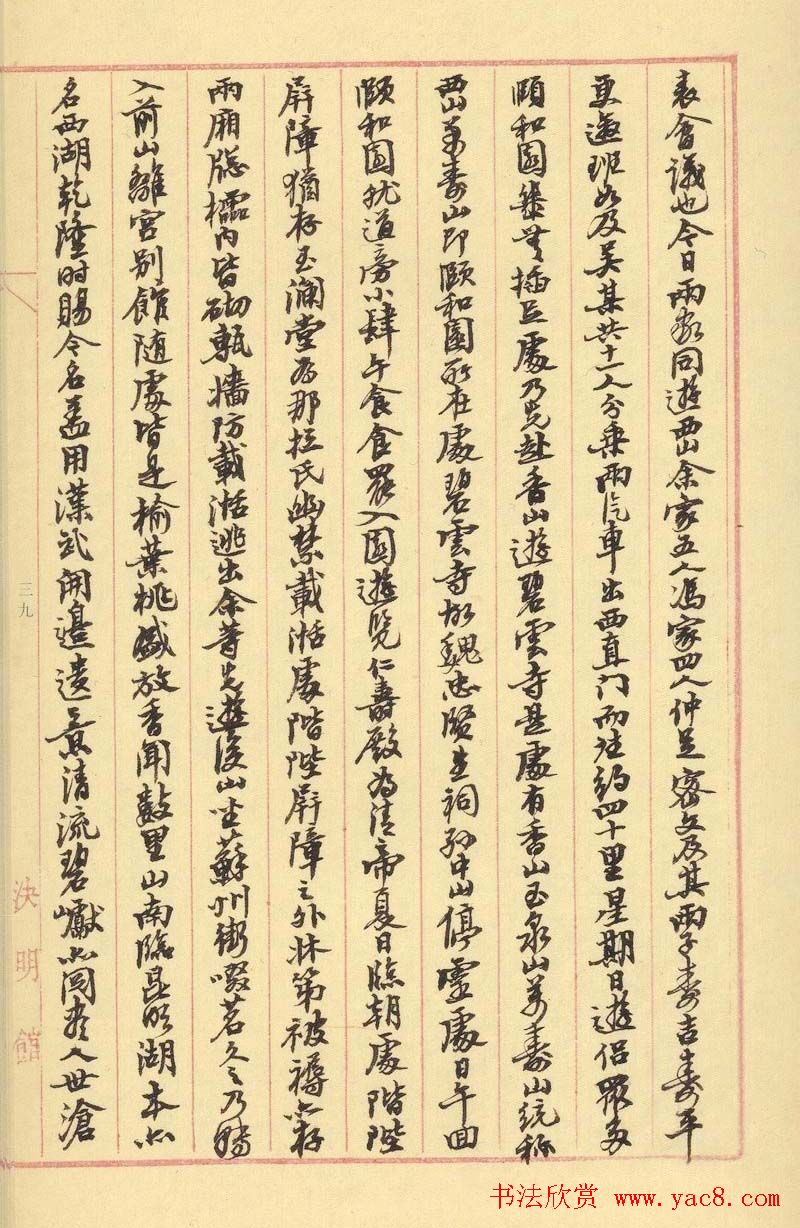 表會議也今日兩家同遊西山余家五人馮家四人仲足密文及其兩子壽吉壽平
更邀班及吳某共十一人分乘兩汽車出西直門而往約四十里星期日遊侶眾多
頤和園幾無插足處乃先赴香山遊碧雲寺是處有香山玉泉山萬壽山統稱
西山萬壽山即頤和園所在處碧雲寺故魏忠賢生祠孫中山停靈處日午回
頤和園就道旁小肆午食食罷入園遊覽仁壽殿為清帝夏日臨朝處階陛
屏障猶存玉瀾堂為那拉氏幽禁載湉處階陛屏障之外牀第被褥亦存
兩廂牕櫺內皆砌甎牆防載湉逃出余昔先遊後山坐蘇州街啜茗久之乃
入前山離宮別館隨處皆是榆葉桃盛放香聞數里山南臨昆明湖本亦
名西湖乾隆時賜今名蓋用漢武開邊遺意清流碧巘亦閱盡人世滄
三九
決明館
书法欣赏 www.yac8.com